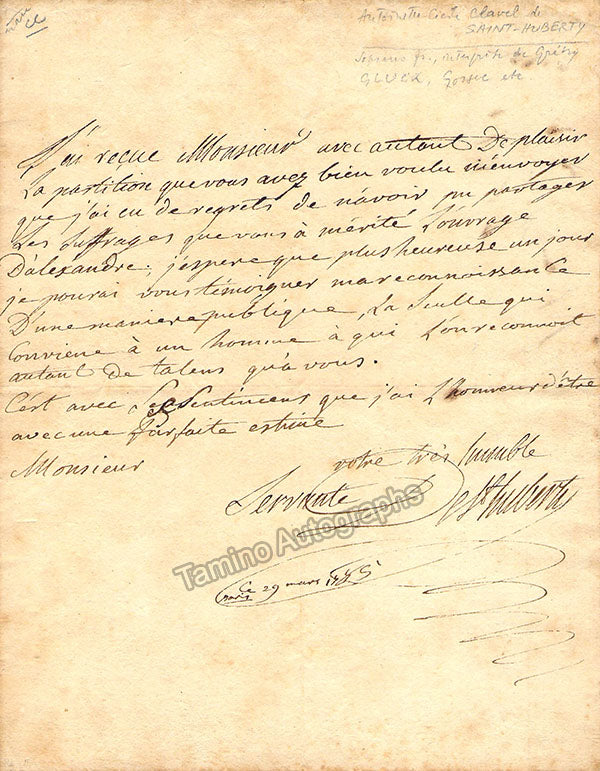 Antoinette-Cécile Clavel de
SAINT-HUBERTY
Soprano fr., interprète de Grétry
GLUCK, Gossec etc
J'ai reçue Monsieur avec autant De plaisir
La partition que vous avez bien voulu m'envoyer
que j'ai eu de regrets de n'avoir pu partager
Les Suffrages que vous à mérité L'ouvrage
D'alexandre, j'espere que plus heureuse un jour
je pourai vous témoigner ma reconnoissance
D'une maniere publique, La Seulle qui
Conviene à un homme à qui L'on reconnoit
autant de talens qu'à vous.
C'ést avec ses Sentimens que j'ai L'honneur d'être
avec une parfaite estime
Monsieur
votre très humble
Servante De St huberty
Tamino Autographs
paris Ce 29 mars